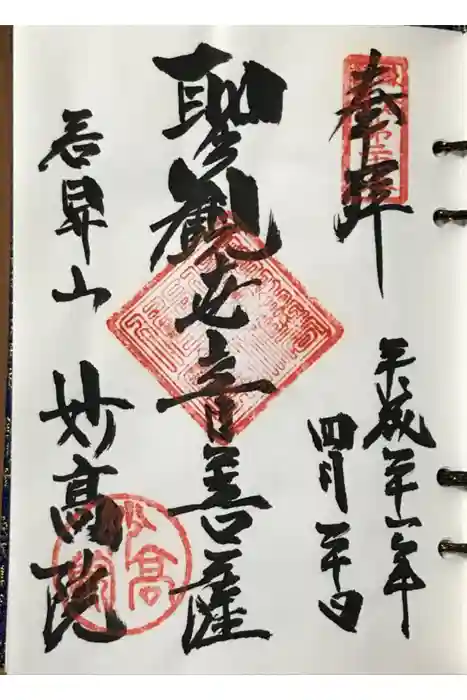 奉拝
平成二十一年
四月二十日
聖観世音菩薩
昇山 妙高院